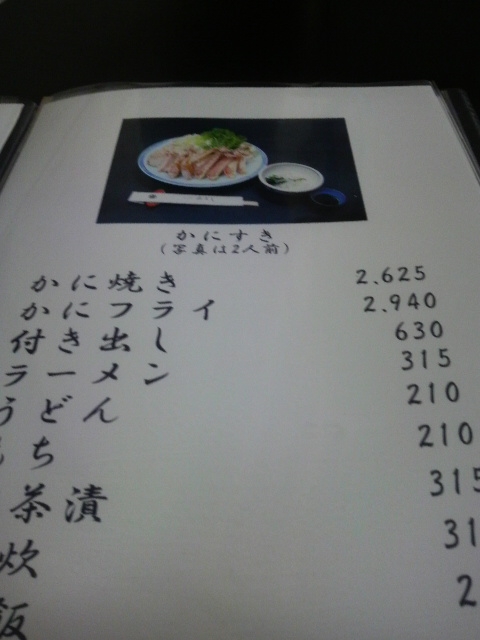 かにすき
(写真は2人前)
かに焼き 2.625
かにフライ 2.940
付き出し 630
ラーメン 315
うどん 210
もち 210
茶漬 315
炊 31
飯 2